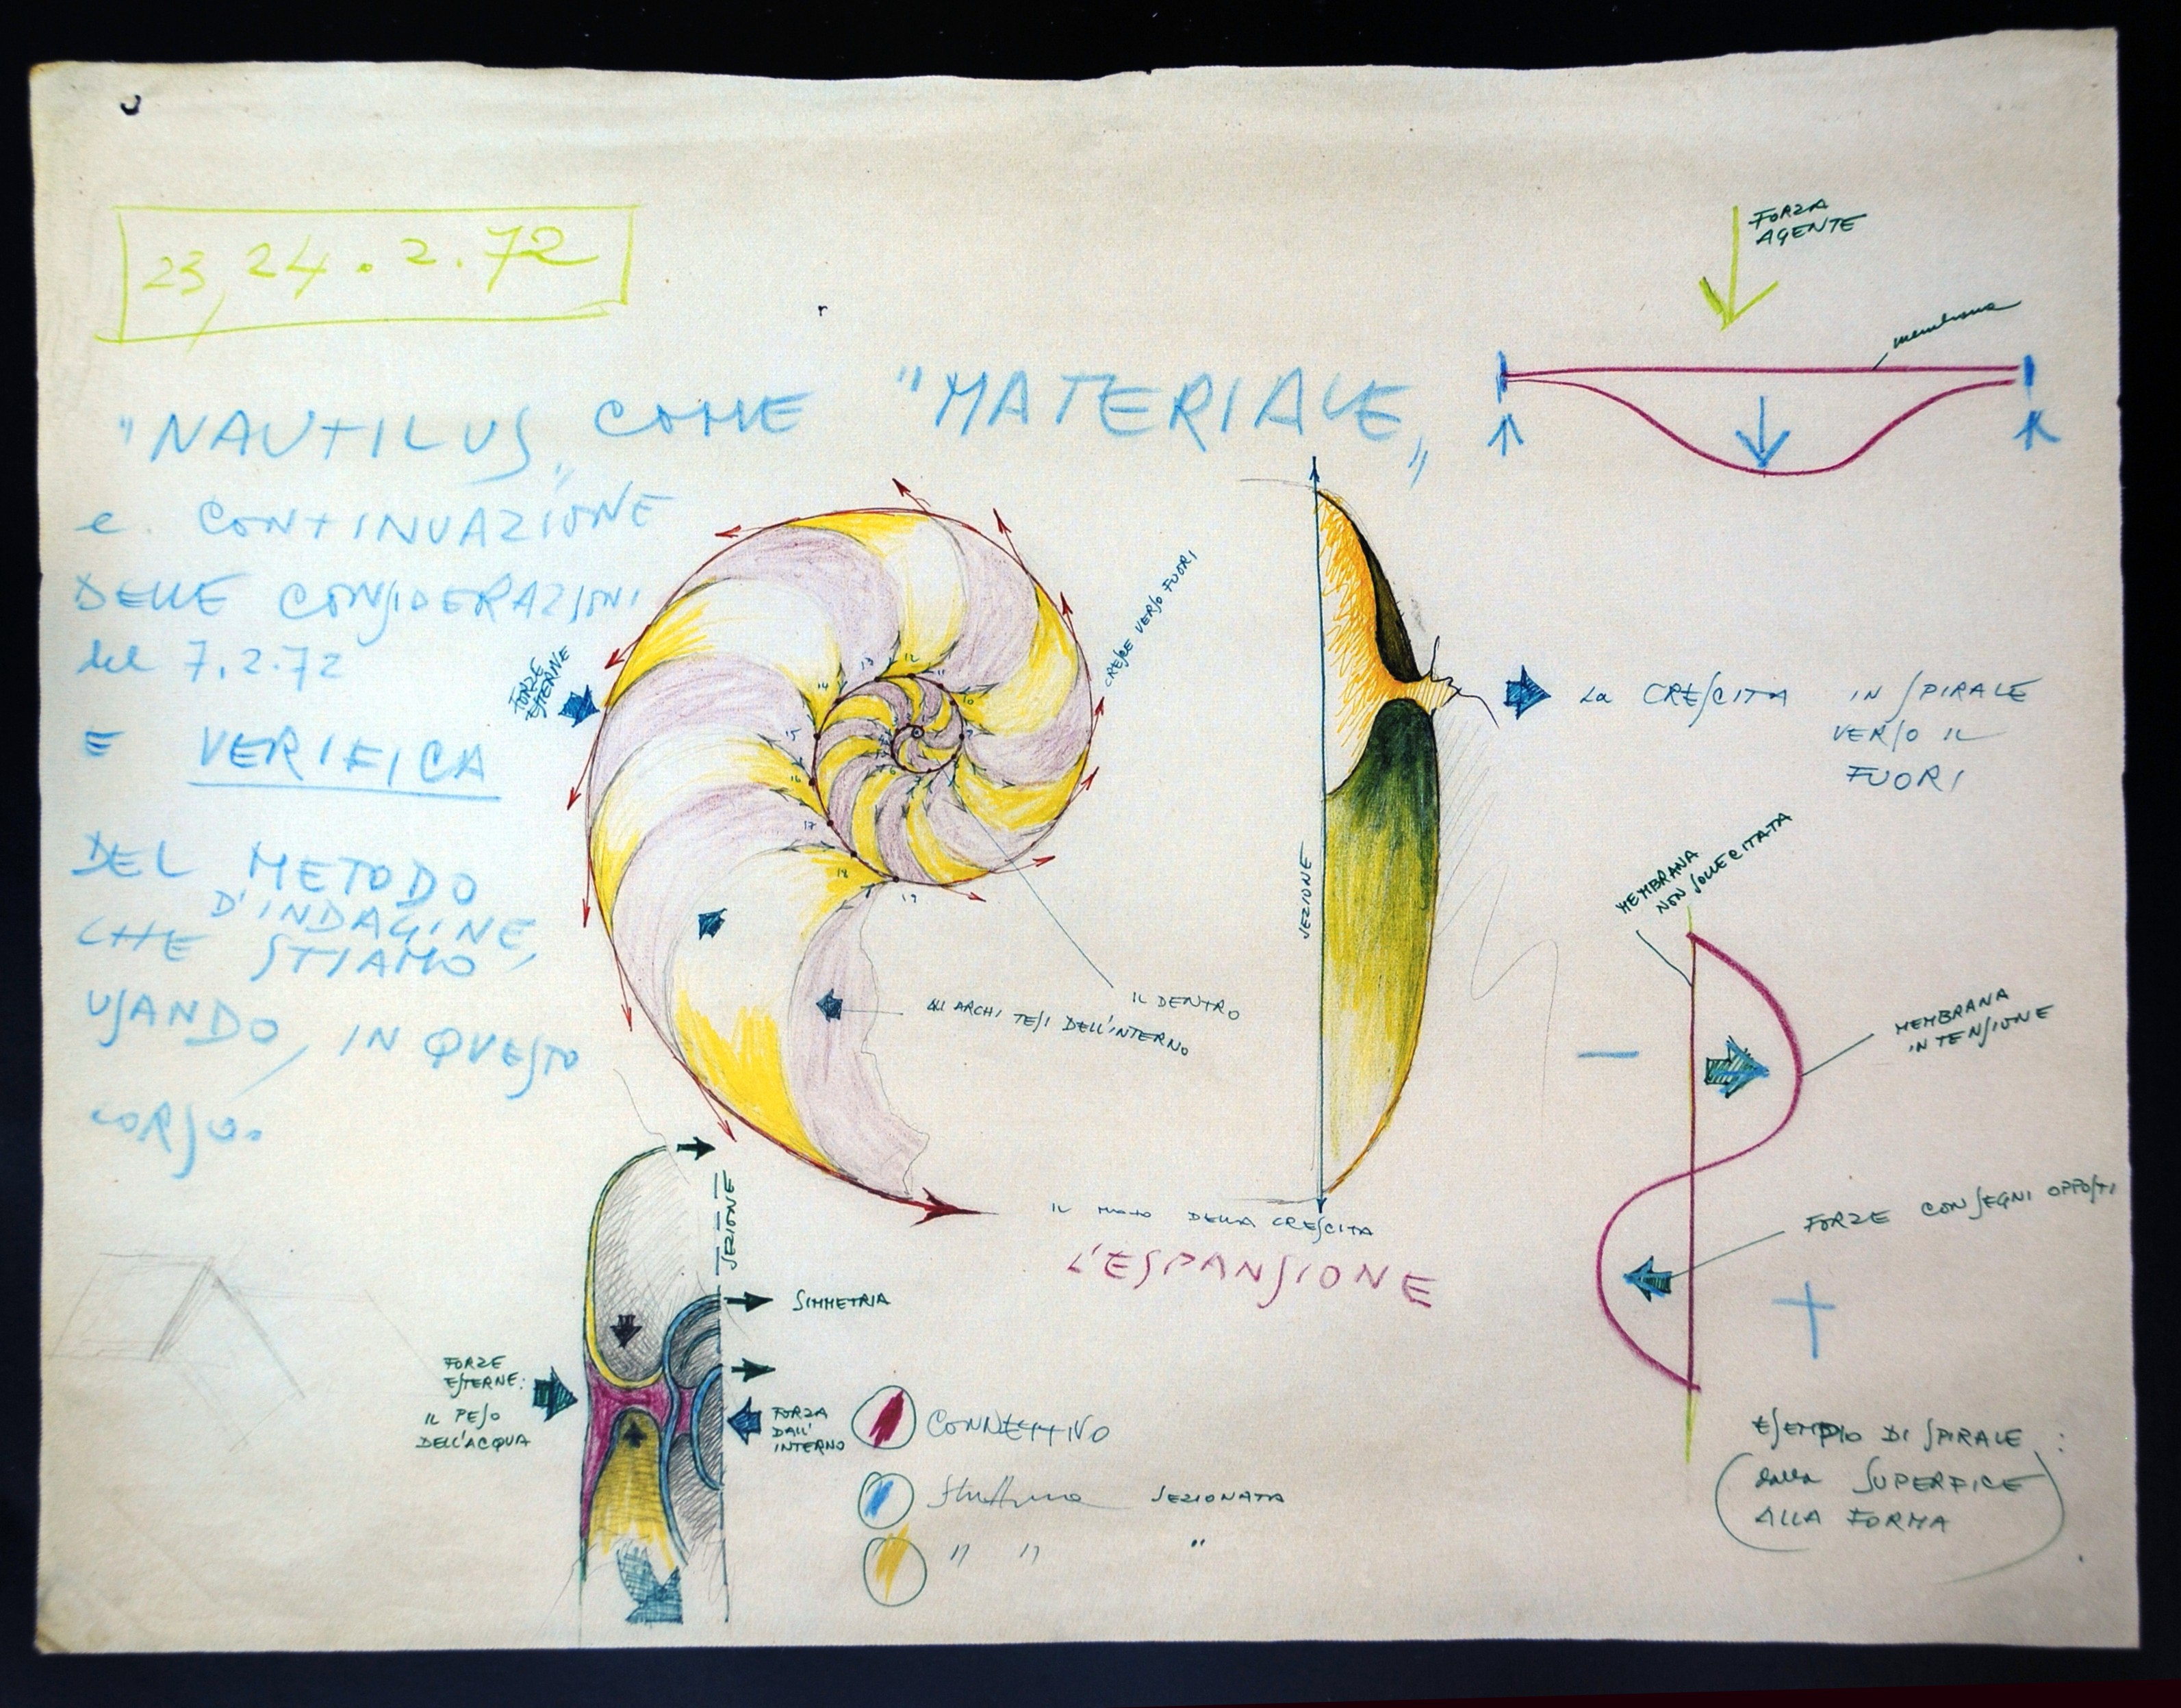 23, 24.2.72
"NAUTILUS„ COME "MATERIALE„
e CONTINUAZIONE
DELLE CONSIDERAZIONI
del 7.2.72
E VERIFICA
DEL METODO
D'INDAGINE,
CHE STIAMO
USANDO, IN QUESTO
CORSO.
FORZE
ESTERNE
CRESCE VERSO FUORI
11
12
13
14
15
16
17
18
19
IL DENTRO
GLI ARCHI TESI DELL'INTERNO
IL DELLA CRESCITA
L'ESPANSIONE
SEZIONE
La CRESCITA IN SPIRALE
VERSO IL
FUORI
FORZA
AGENTE
membrana
MEMBRANA
NON SOLLECITATA
MEMBRANA
IN TENSIONE
−
FORZE CON SEGNI OPPOSTI
+
ESEMPIO DI SPIRALE :
(dalla SUPERFICE
ALLA FORMA)
SEZIONE
SIMMETRIA
FORZE
ESTERNE:
IL PESO
DELL'ACQUA
FORZA
DALL'
INTERNO
CONNETTIVO
Struttura SEZIONATA
" " "